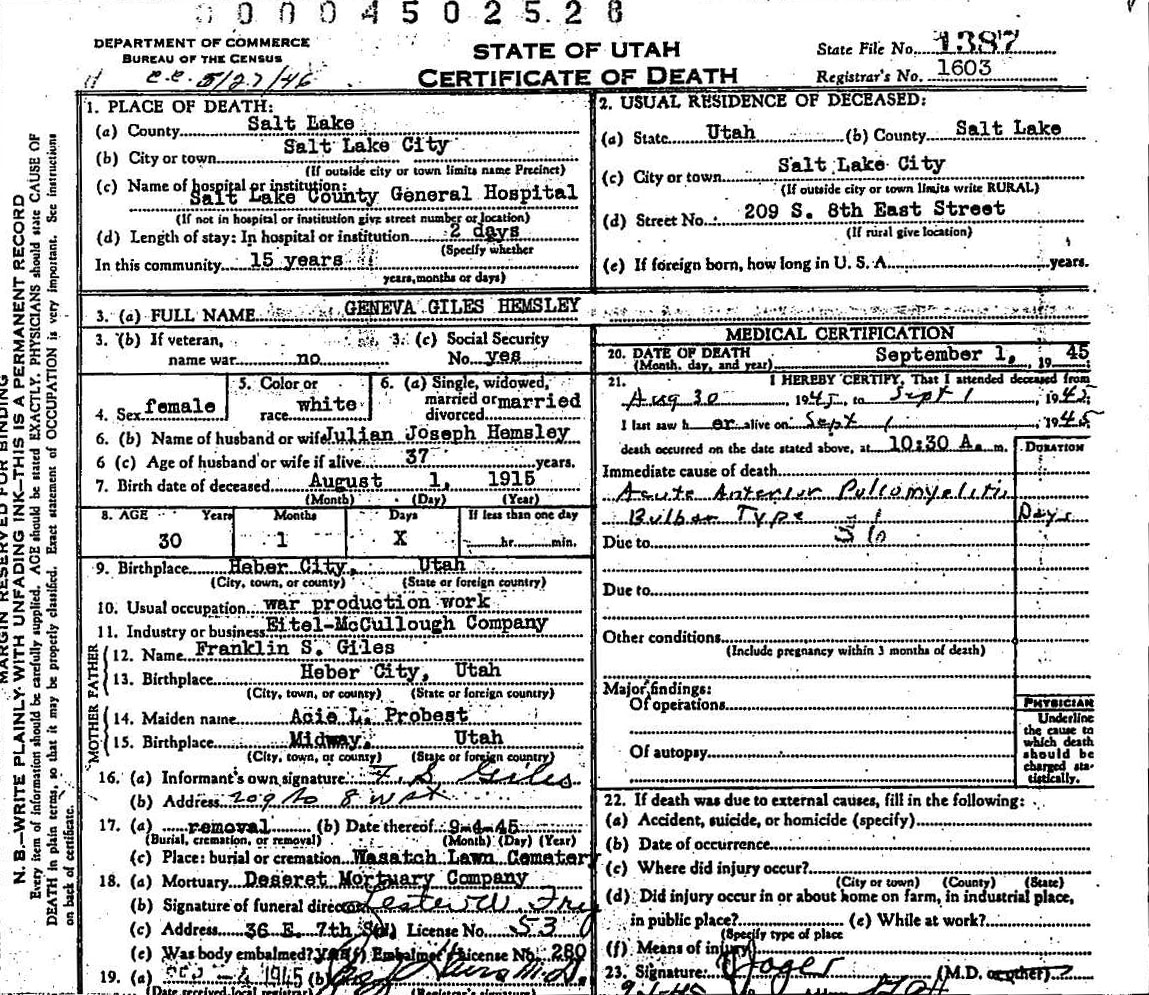 0 0 0 0 4 5 0 2 5. 2 8
DEPARTMENT OF COMMERCE
BUREAU OF THE CENSUS
c.c. 5/27/46
STATE OF UTAH
CERTIFICATE OF DEATH
State File No. 1387
Registrar's No. 1603
MARGIN RESERVED FOR BINDING
N. B.—WRITE PLAINLY WITH UNFADING INK—THIS IS A PERMANENT RECORD
Every item of information should be carefully supplied. AGE should be stated EXACTLY. PHYSICIANS should state CAUSE OF
DEATH in plain terms, so that it may be properly classified. Exact statement of OCCUPATION is very important. See instructions
on back of certificate.
1. PLACE OF DEATH:
(a) County Salt Lake
(b) City or town Salt Lake City
(If outside city or town limits name Precinct)
(c) Name of hospital or institution:
Salt Lake County General Hospital
(If not in hospital or institution give street number or location)
(d) Length of stay: In hospital or institution 2 days
(Specify whether
In this community 15 years
years, months or days)
2. USUAL RESIDENCE OF DECEASED:
(a) State Utah (b) County Salt Lake
(c) City or town Salt Lake City
(If outside city or town limits write RURAL)
(d) Street No. 209 S. 8th East Street
(If rural give location)
(e) If foreign born, how long in U. S. A. years.
3. (a) FULL NAME GENEVA GILES HEMSLEY
3. (b) If veteran, name war no
3. (c) Social Security No. yes
4. Sex female
5. Color or race white
6. (a) Single, widowed, married or divorced married
6. (b) Name of husband or wife Julian Joseph Hemsley
6 (c) Age of husband or wife if alive 37 years.
7. Birth date of deceased August 1, 1915
(Month) (Day) (Year)
8. AGE Years Months Days If less than one day
30 1 X hr. min.
9. Birthplace Heber City, Utah
(City, town, or county) (State or foreign country)
10. Usual occupation war production work
11. Industry or business Eitel-McCullough Company
FATHER
12. Name Franklin S. Giles
13. Birthplace Heber City, Utah
(City, town, or county) (State or foreign country)
MOTHER
14. Maiden name Acie L. Probest
15. Birthplace Midway, Utah
(City, town, or county) (State or foreign country)
16. (a) Informant's own signature F. S. Giles
(b) Address
17. (a) removal (b) Date thereof 9-4-45
(Burial, cremation, or removal) (Month) (Day) (Year)
(c) Place: burial or cremation Wasatch Lawn Cemetery
18. (a) Mortuary Deseret Mortuary Company
(b) Signature of funeral director
(c) Address 36 E. 7th So. License No. 53
(e) Was body embalmed? yes Embalmer's License No. 280
19. (a) SEP -4 1945 (b)
(Date received local registrar) (Registrar's signature)
MEDICAL CERTIFICATION
20. DATE OF DEATH September 1, 1945
(Month, day, and year)
21. I HEREBY CERTIFY, That I attended deceased from
Aug 30, 1945, to Sept 1, 1945
I last saw her alive on Sept 1, 1945
death occurred on the date stated above, at 10:30 A. m.
DURATION
Immediate cause of death
Acute Anterior Poliomyelitis
Bulbar Type Days
Due to
Due to
Other conditions
(Include pregnancy within 3 months of death)
Major findings:
Of operations
Of autopsy
PHYSICIAN
Underline
the cause to
which death
should be
charged sta-
tistically.
22. If death was due to external causes, fill in the following:
(a) Accident, suicide, or homicide (specify)
(b) Date of occurrence
(c) Where did injury occur?
(City or town) (County) (State)
(d) Did injury occur in or about home on farm, in industrial place,
in public place? (e) While at work?
(Specify type of place
(f) Means of injury
23. Signature (M.D. or other)